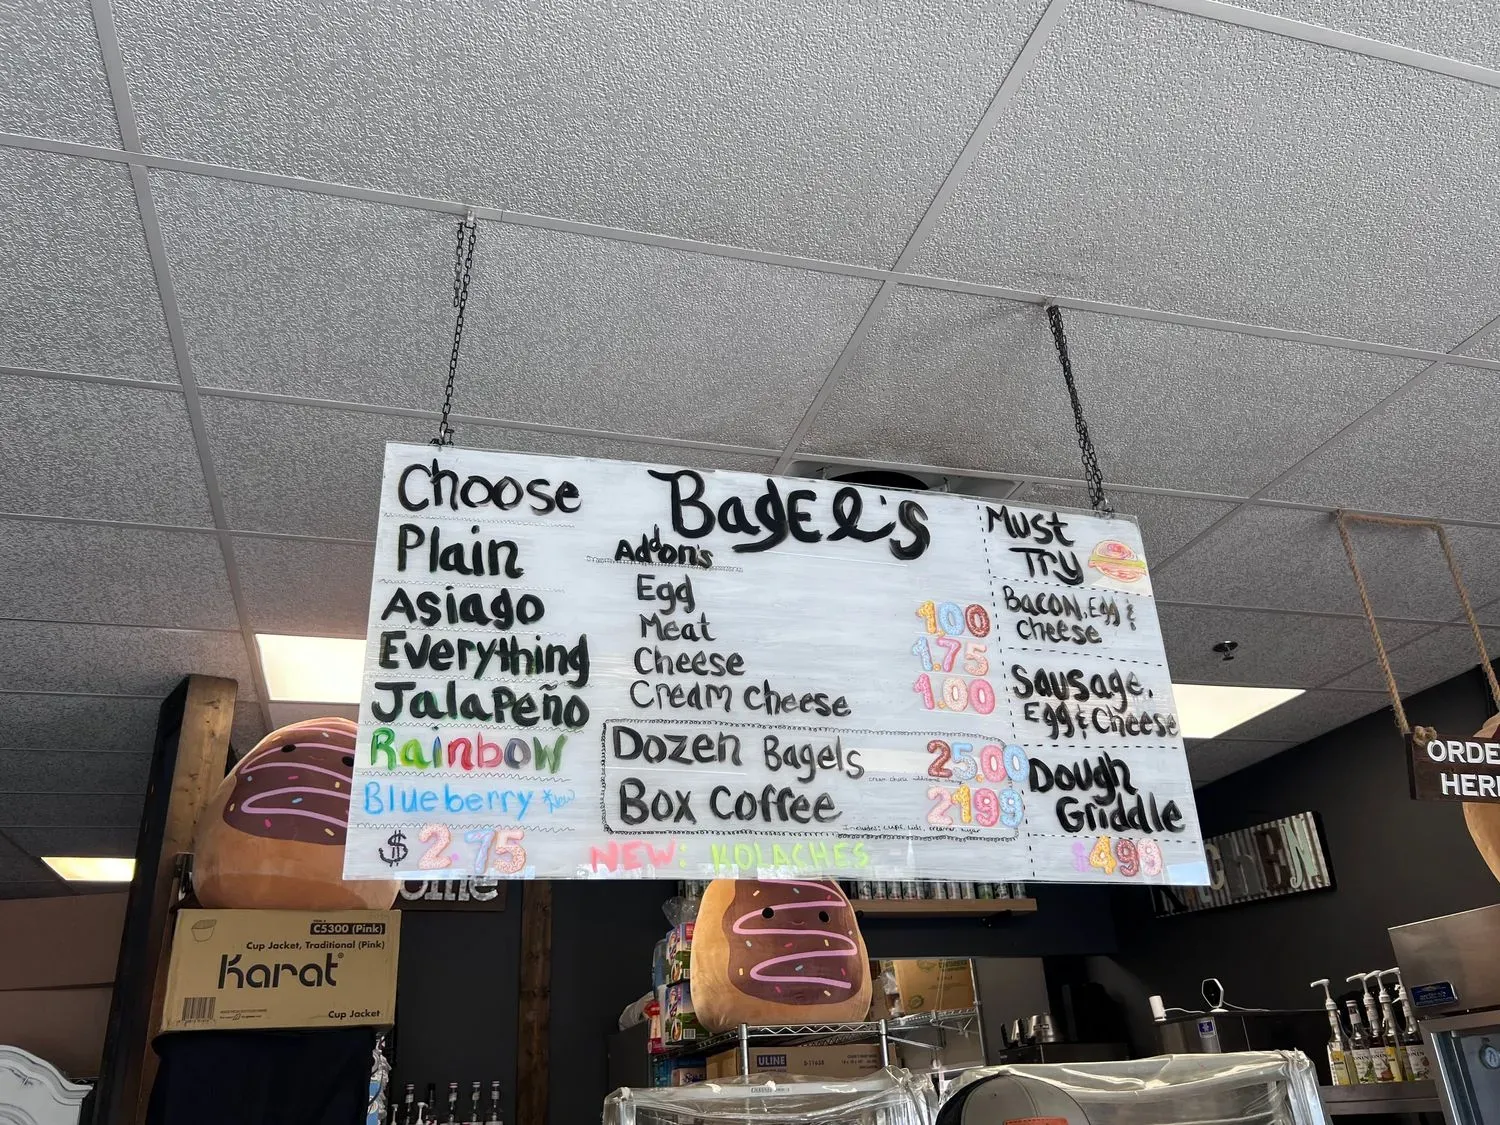 Choose
Plain
Asiago
Everything
Jalapeño
Rainbow
Blueberry *New
$2.75
Bagel's
Addon's
Egg
Meat 1.00
Cheese 1.75
Cream Cheese 1.00
Dozen Bagels 25.00
Box Coffee 2199
Includes: cups, lids, creamer, sugar
NEW: KOLACHES
Must
Try
Bacon, Egg &
Cheese
Sausage,
Egg & Cheese
Dough
Griddle
$499
ORDE
HER
KITCHEN
C5300 (Pink)
Cup Jacket, Traditional (Pink)
Karat®
Cup Jacket
ULINE
S-11638